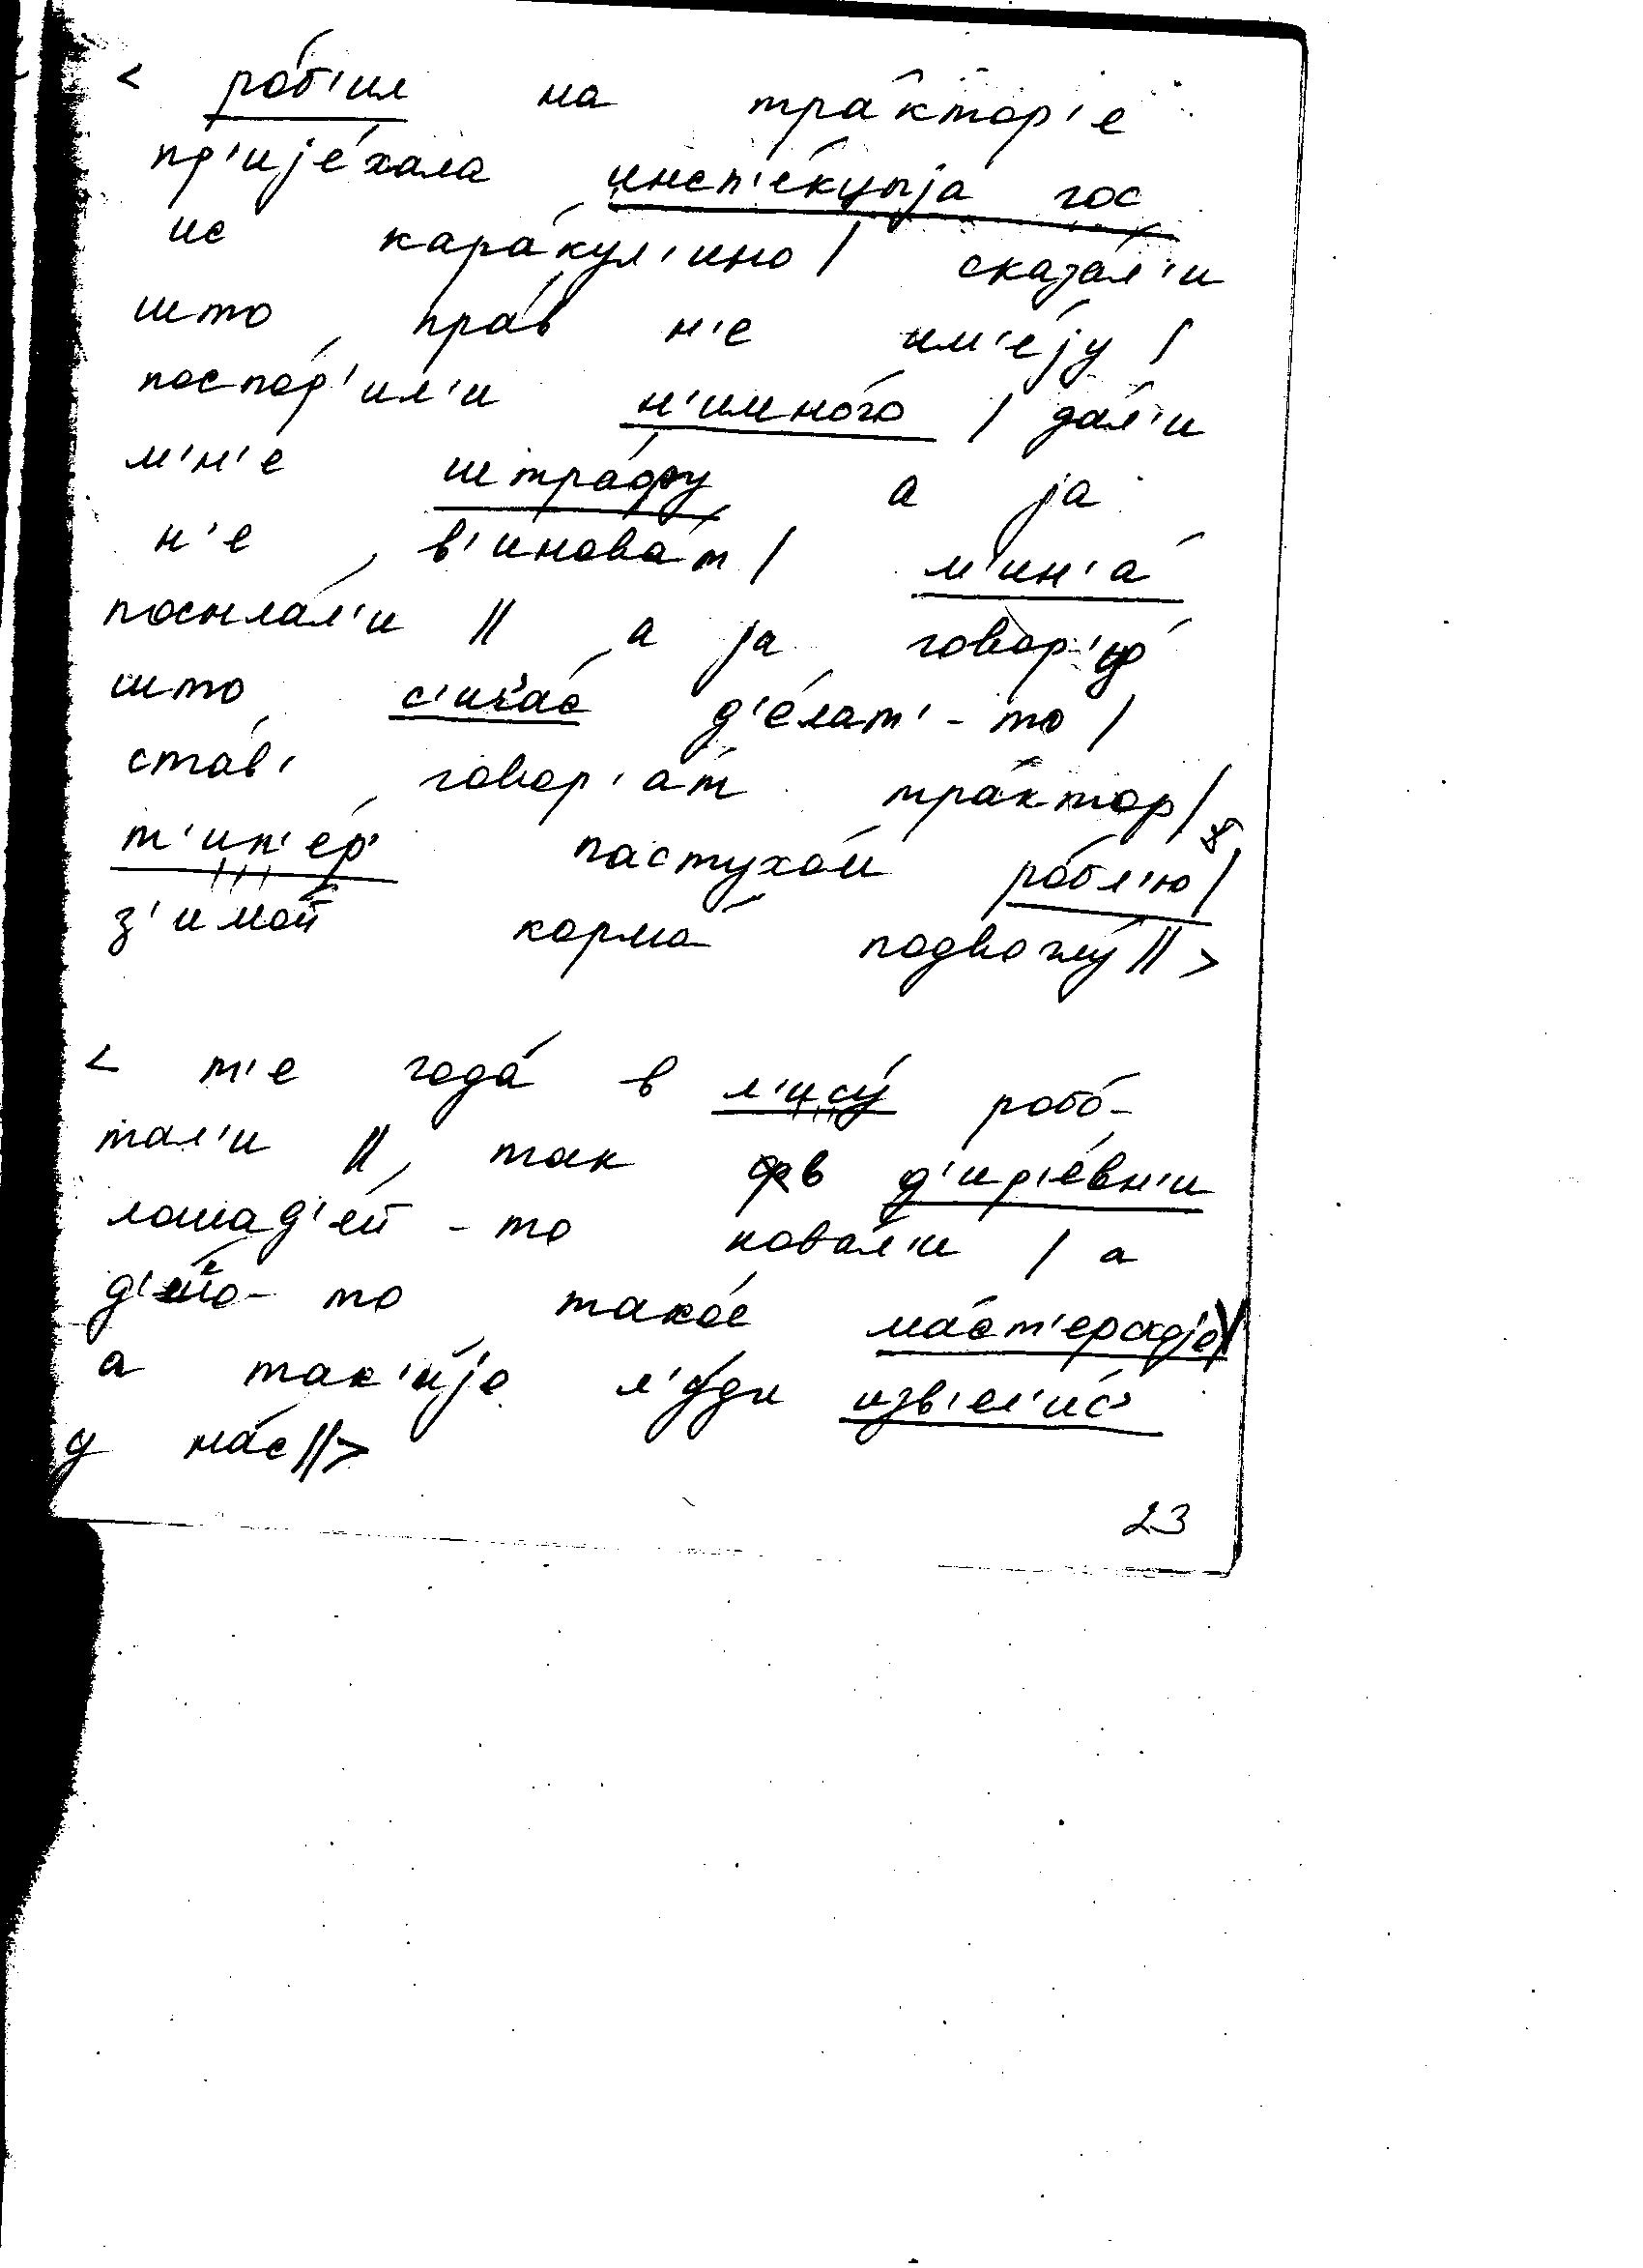 < ро́б'ил на тра́ктор'е
пр'ијéхала инсп'éкцыја гос
ис кара́кул'ино / сказа́л'и
што пра́в н'е им'éју /
поспо́р'ил'и н'имно́го / да́л'и
м'н'é штра́фу а ја
н'е в'инова́т / м'ин'а́
посыла́л'и // а ја говор'у́
што с'ича́с д'éлат'-то /
ста́в' говор'а́т тра́ктор /
т'ип'éр' пастухо́м ро́бл'ю /
з'имо́й корма́ подвожу́ // >
< т'е года́ в л'ису́ робо́-
тал'и // так в д'ир'éвн'и
лошад'éй-то кова́л'и / а
то тако́е ма́ст'ерство
а так'и́је л'у́ди изв'ел'и́с'
у на́с // >
23